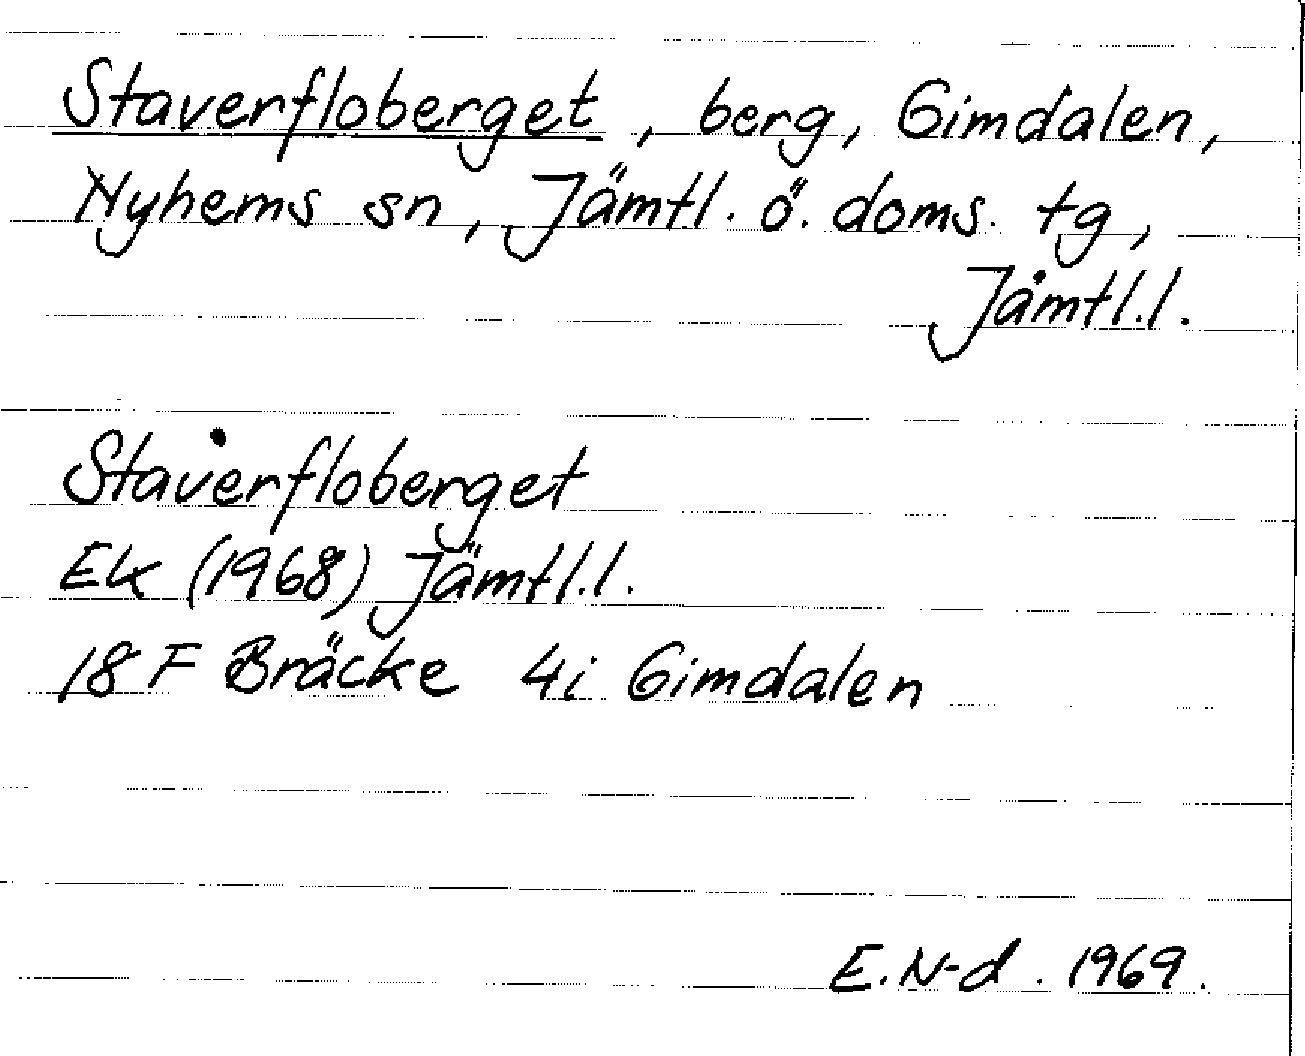 Staverfloberget, berg, Gimdalen,
Nyhems sn, Jämtl. ö. doms. tg,
Jämtl.l.
Staverfloberget
Ek (1968) Jämtl.l.
18 F Bräcke 4i Gimdalen
E. N-d. 1969.